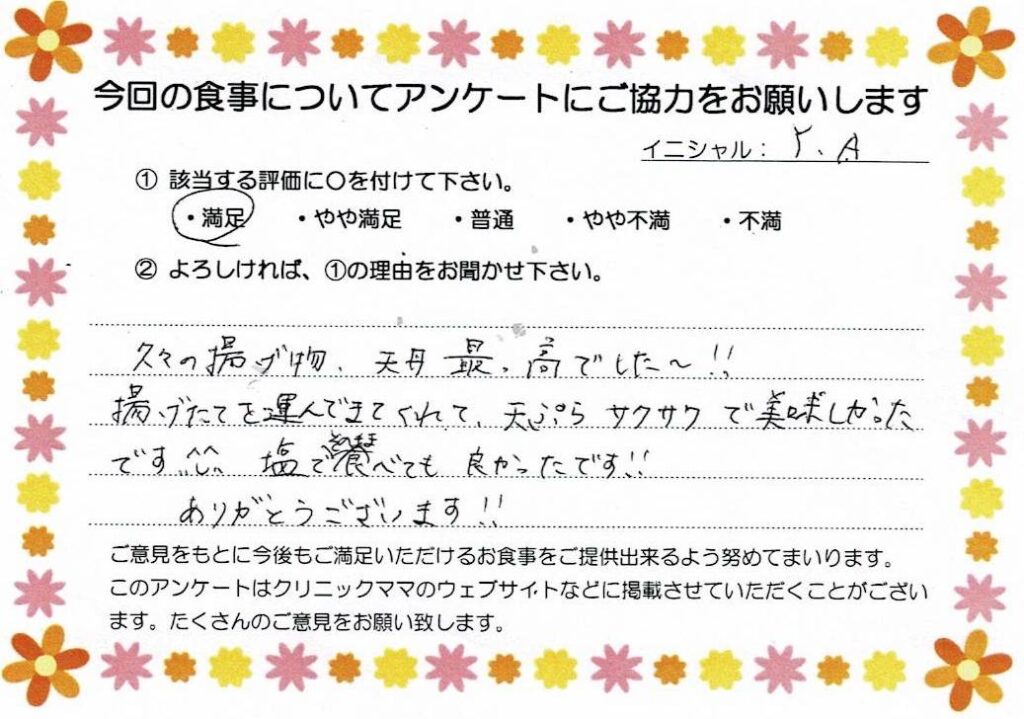 今回の食事についてアンケートにご協力をお願いします
イニシャル： Y. A
① 該当する評価に〇を付けて下さい。
・満足 ・やや満足 ・普通 ・やや不満 ・不満
② よろしければ、①の理由をお聞かせ下さい。
久々の揚げ物、天丼 最。高でした〜!!
揚げたてを運んできてくれて、天ぷら サクサク で美味しかった
です 塩で べても 良かったです!!
ありがとうございます!!
ご意見をもとに今後もご満足いただけるお食事をご提供出来るよう努めてまいります。
このアンケートはクリニックママのウェブサイトなどに掲載させていただくことがござい
ます。たくさんのご意見をお願い致します。